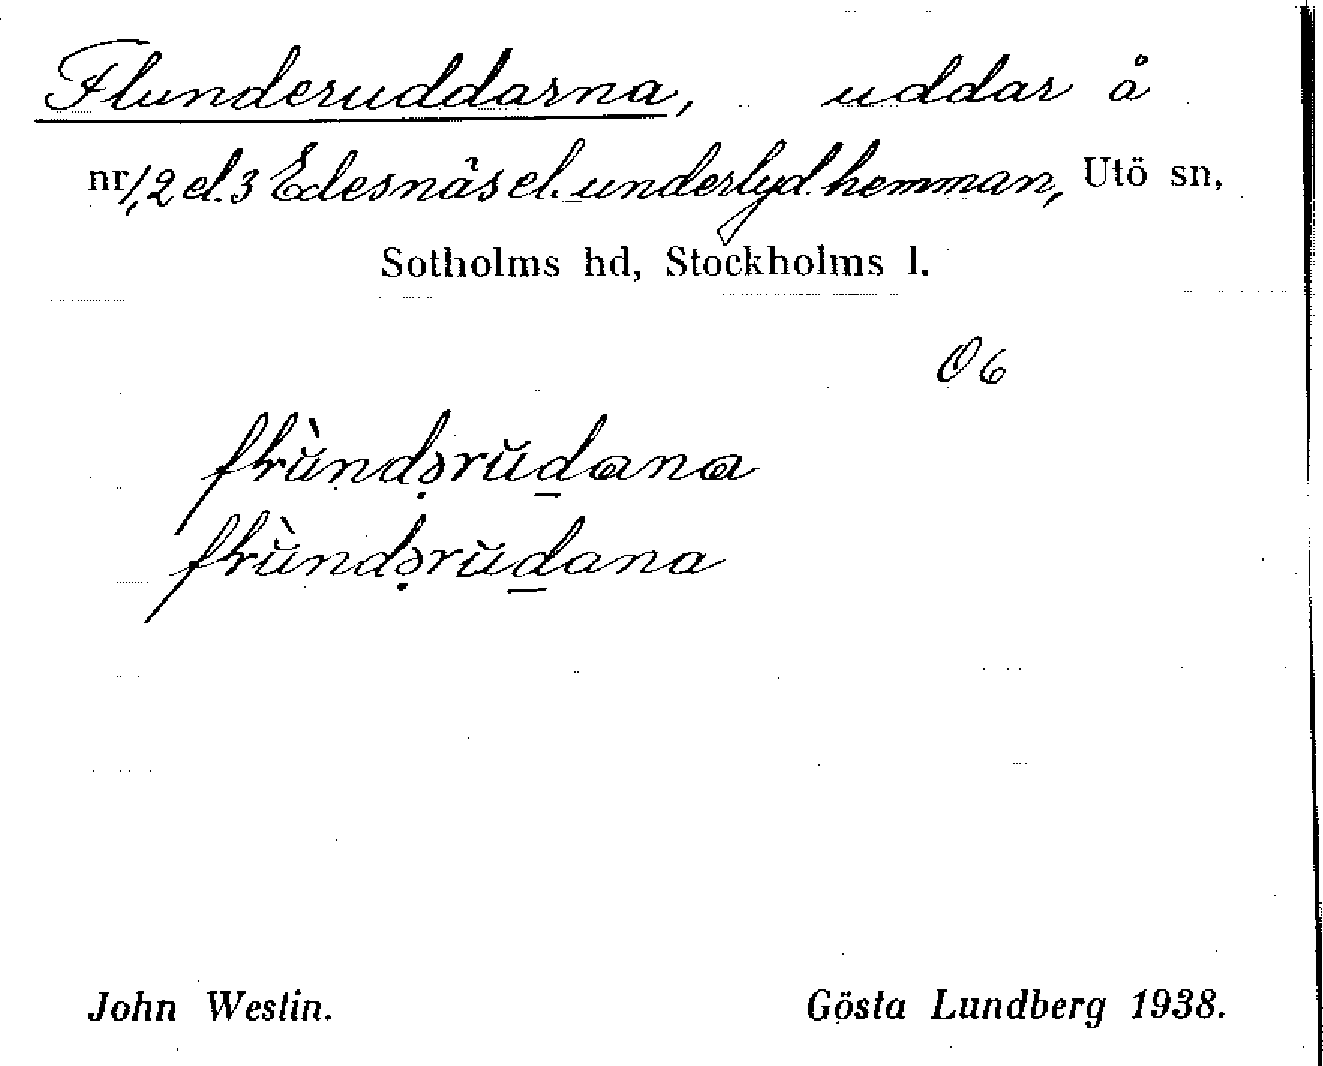 Flunderuddarna, uddar å
nr 1, 2 el. 3 Edesnäs el. underlyd. hemman, Utö sn,
Sotholms hd, Stockholms l.
O6
John Westin. Gösta Lundberg 1938.